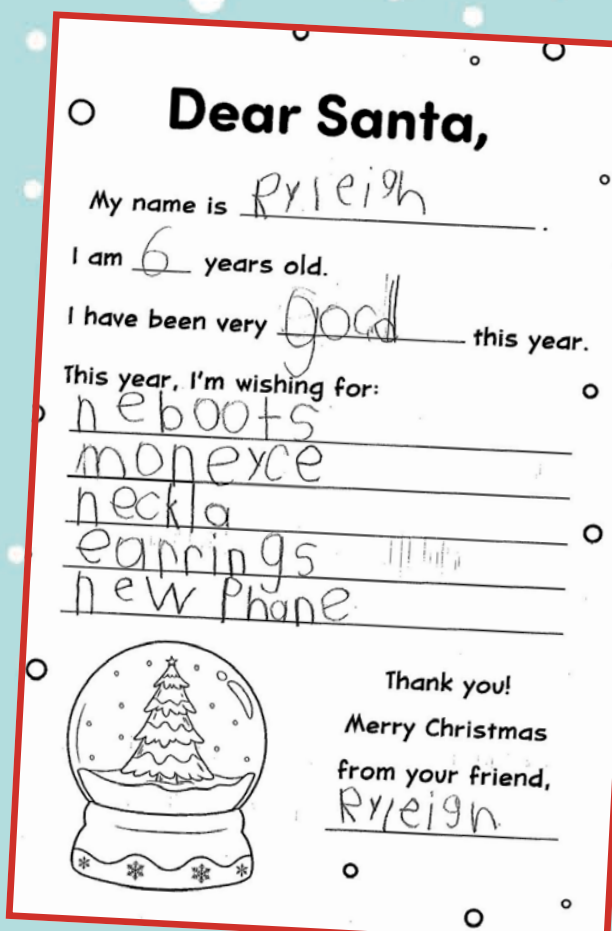 Dear Santa,
My name is Ryleigh.
I am 6 years old.
I have been very good this year.
This year, I'm wishing for:
neboots
moneyce
neckla
earrings
new Phone
Thank you!
Merry Christmas
from your friend,
Ryleigh